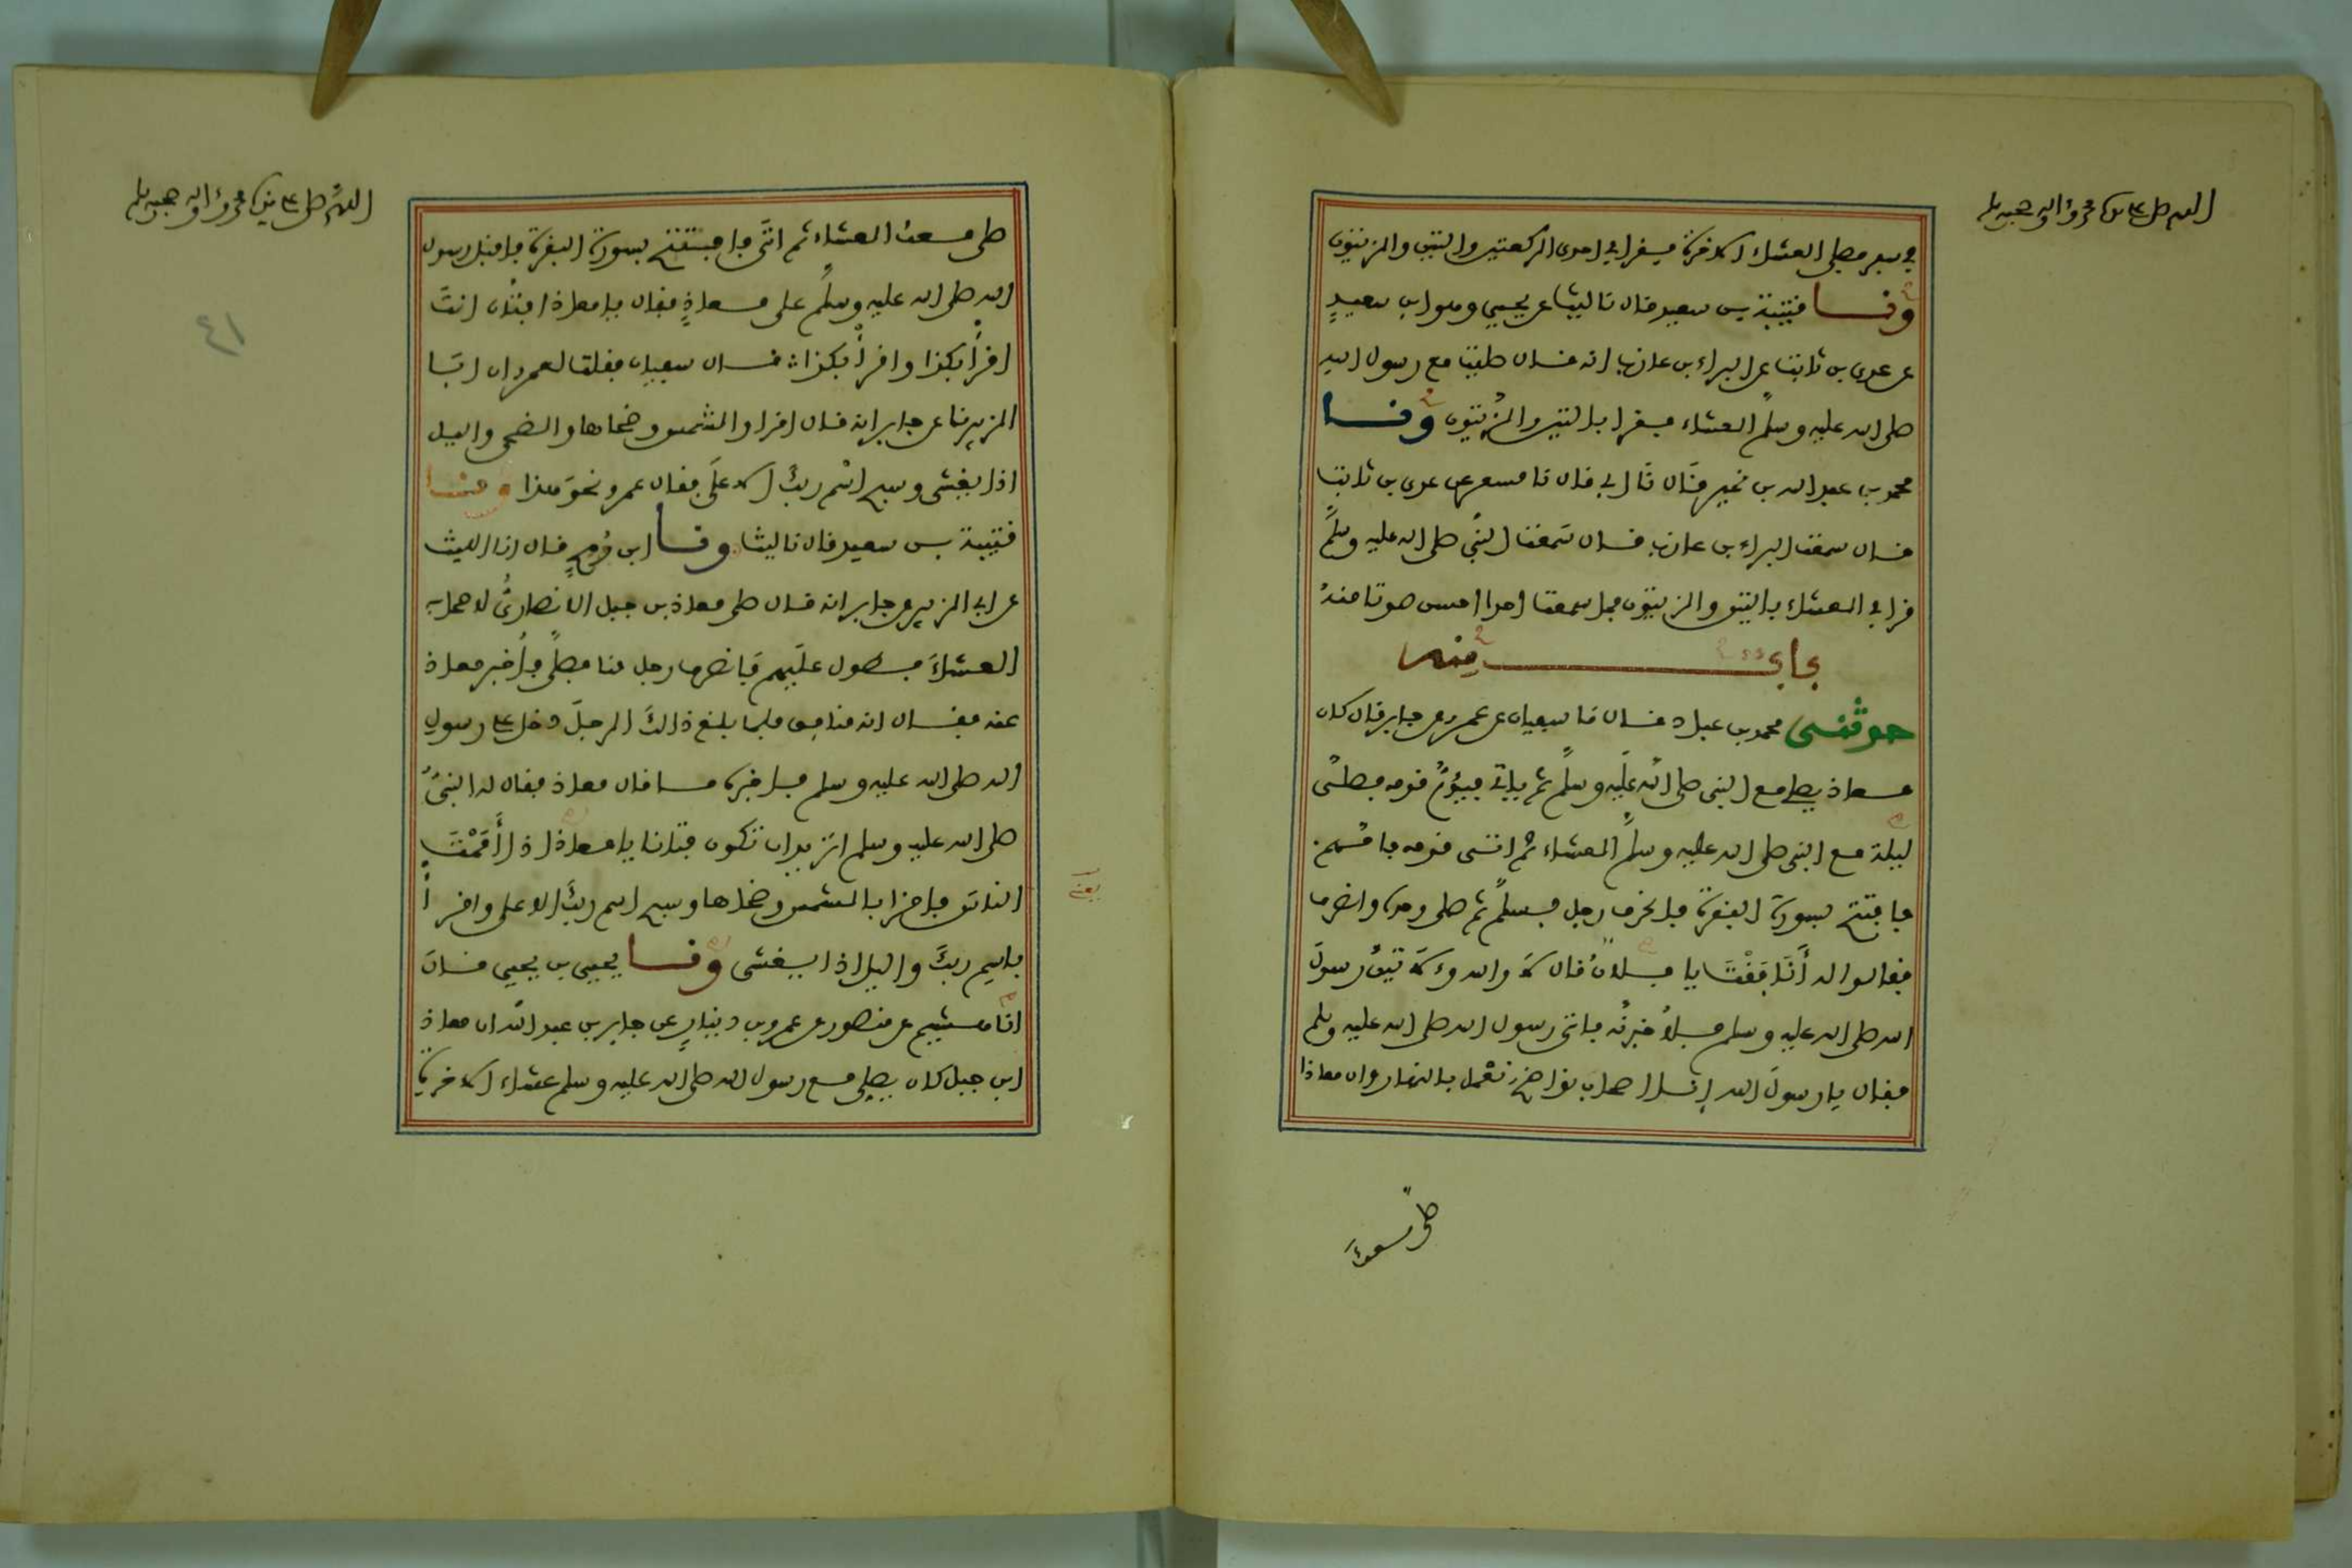 اللهم صل على سيدنا محمد وءاله وصحبه وسلم
في سفر فصلى العشاء الاخرة فقرا في احدى الركعتين والتين والزيتون
وثنا قتيبة بن سعيد قال نا ليث عن يحيى وهو ابن سعيد
عن عدي بن ثابت عن البراء بن عازب انه قال صليت مع رسول الله
صلى الله عليه وسلم العشاء فقرا بالتين والزيتون وثنا
محمد بن عبد الله بن نمير قال نا ابي قال نا مسعر عن عدي بن ثابت
قال سمعت البراء بن عازب قال سمعت النبي صلى الله عليه وسلم
قرا في العشاء بالتين والزيتون فما سمعت احدا احسن صوتا منه
باب منه
حدثني محمد بن عباد قال نا سفيان عن عمرو عن جابر قال كان
معاذ يصلي مع النبي صلى الله عليه وسلم ثم ياتي فيؤم قومه فصلى
ليلة مع النبي صلى الله عليه وسلم العشاء ثم اتى قومه فامهم
فافتتح بسورة البقرة فانحرف رجل فسلم ثم صلى وحده وانصرف
فقالوا له أنافقت يا فلان قال لا والله ولا تين رسول
الله صلى الله عليه وسلم فلأخبرنه فاتى رسول الله صلى الله عليه وسلم
فقال يا رسول الله إنا اصحاب نواضح نعمل بالنهار وان معاذا
صلى معك
اللهم صل على سيدنا محمد وءاله وصحبه وسلم
صلى معك العشاء ثم اتى فافتتح بسورة البقرة فاقبل رسول
الله صلى الله عليه وسلم على معاذ فقال يا معاذ افتان انت
اقرأ بكذا واقرأ بكذا قال سفيان فقلت لعمرو ان ابا
الزبير نا عن جابر انه قال اقرا والشمس وضحاها والضحى واليل
اذا يغشى وسبح اسم ربك الاعلى فقال عمرو نحو هذا وثنا
قتيبة بن سعيد قال نا ليث وثنا ابن رمح قال انا الليث
عن ابي الزبير عن جابر انه قال صلى معاذ بن جبل الانصاري لاصحابه
العشاء فطول عليهم فانصرف رجل منا فصلى فأخبر معاذ
عنه فقال انه منافق فلما بلغ ذالك الرجل دخل على رسول
الله صلى الله عليه وسلم فاخبره ما قال معاذ فقال له النبي
صلى الله عليه وسلم اتريد ان تكون فتانا يا معاذ اذا أممت
الناس فاقرا بالشمس وضحاها وسبح اسم ربك الاعلى واقرأ
باسم ربك واليل اذا يغشى وثنا يحيى بن يحيى قال
انا هشيم عن منصور عن عمرو بن دينار عن جابر بن عبد الله ان معاذ
ابن جبل كان يصلي مع رسول الله صلى الله عليه وسلم عشاء الاخرة
يعني
٤١